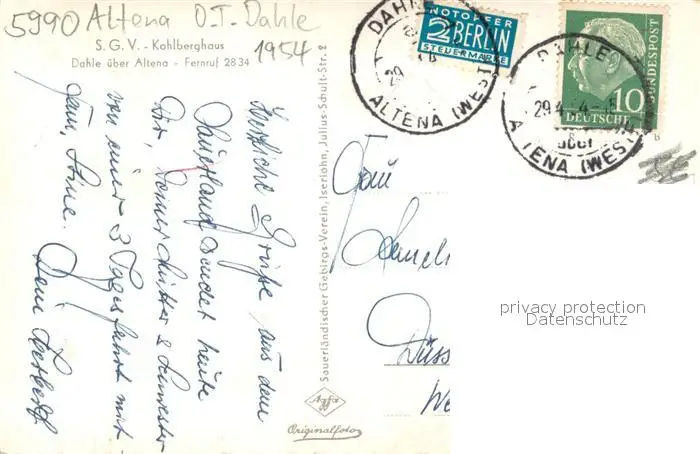 5990 Altena O.T. Dahle
1954
S.G.V. - Kohlberghaus
Dahle über Altena - Fernruf 2834
Herzliche Grüße aus dem
Sauerland sendet heute
Dir, Deiner Mutter & Schwester
von einer 3 Tagesfahrt mit
Dein Herbert
Sauerländischer Gebirgs-Verein, Iserlohn, Julius-Schult-Str. 2
Agfa
Originalfoto
NOTOPFER
2 BERLIN
STEUERMARKE
DAHLE
29
ALTENA (WESTF)
DEUTSCHE
BUNDESPOST
10
DAHLE
29.4.
über
ALTENA (WESTF)
Frau
Düss
We
privacy protection
Datenschutz